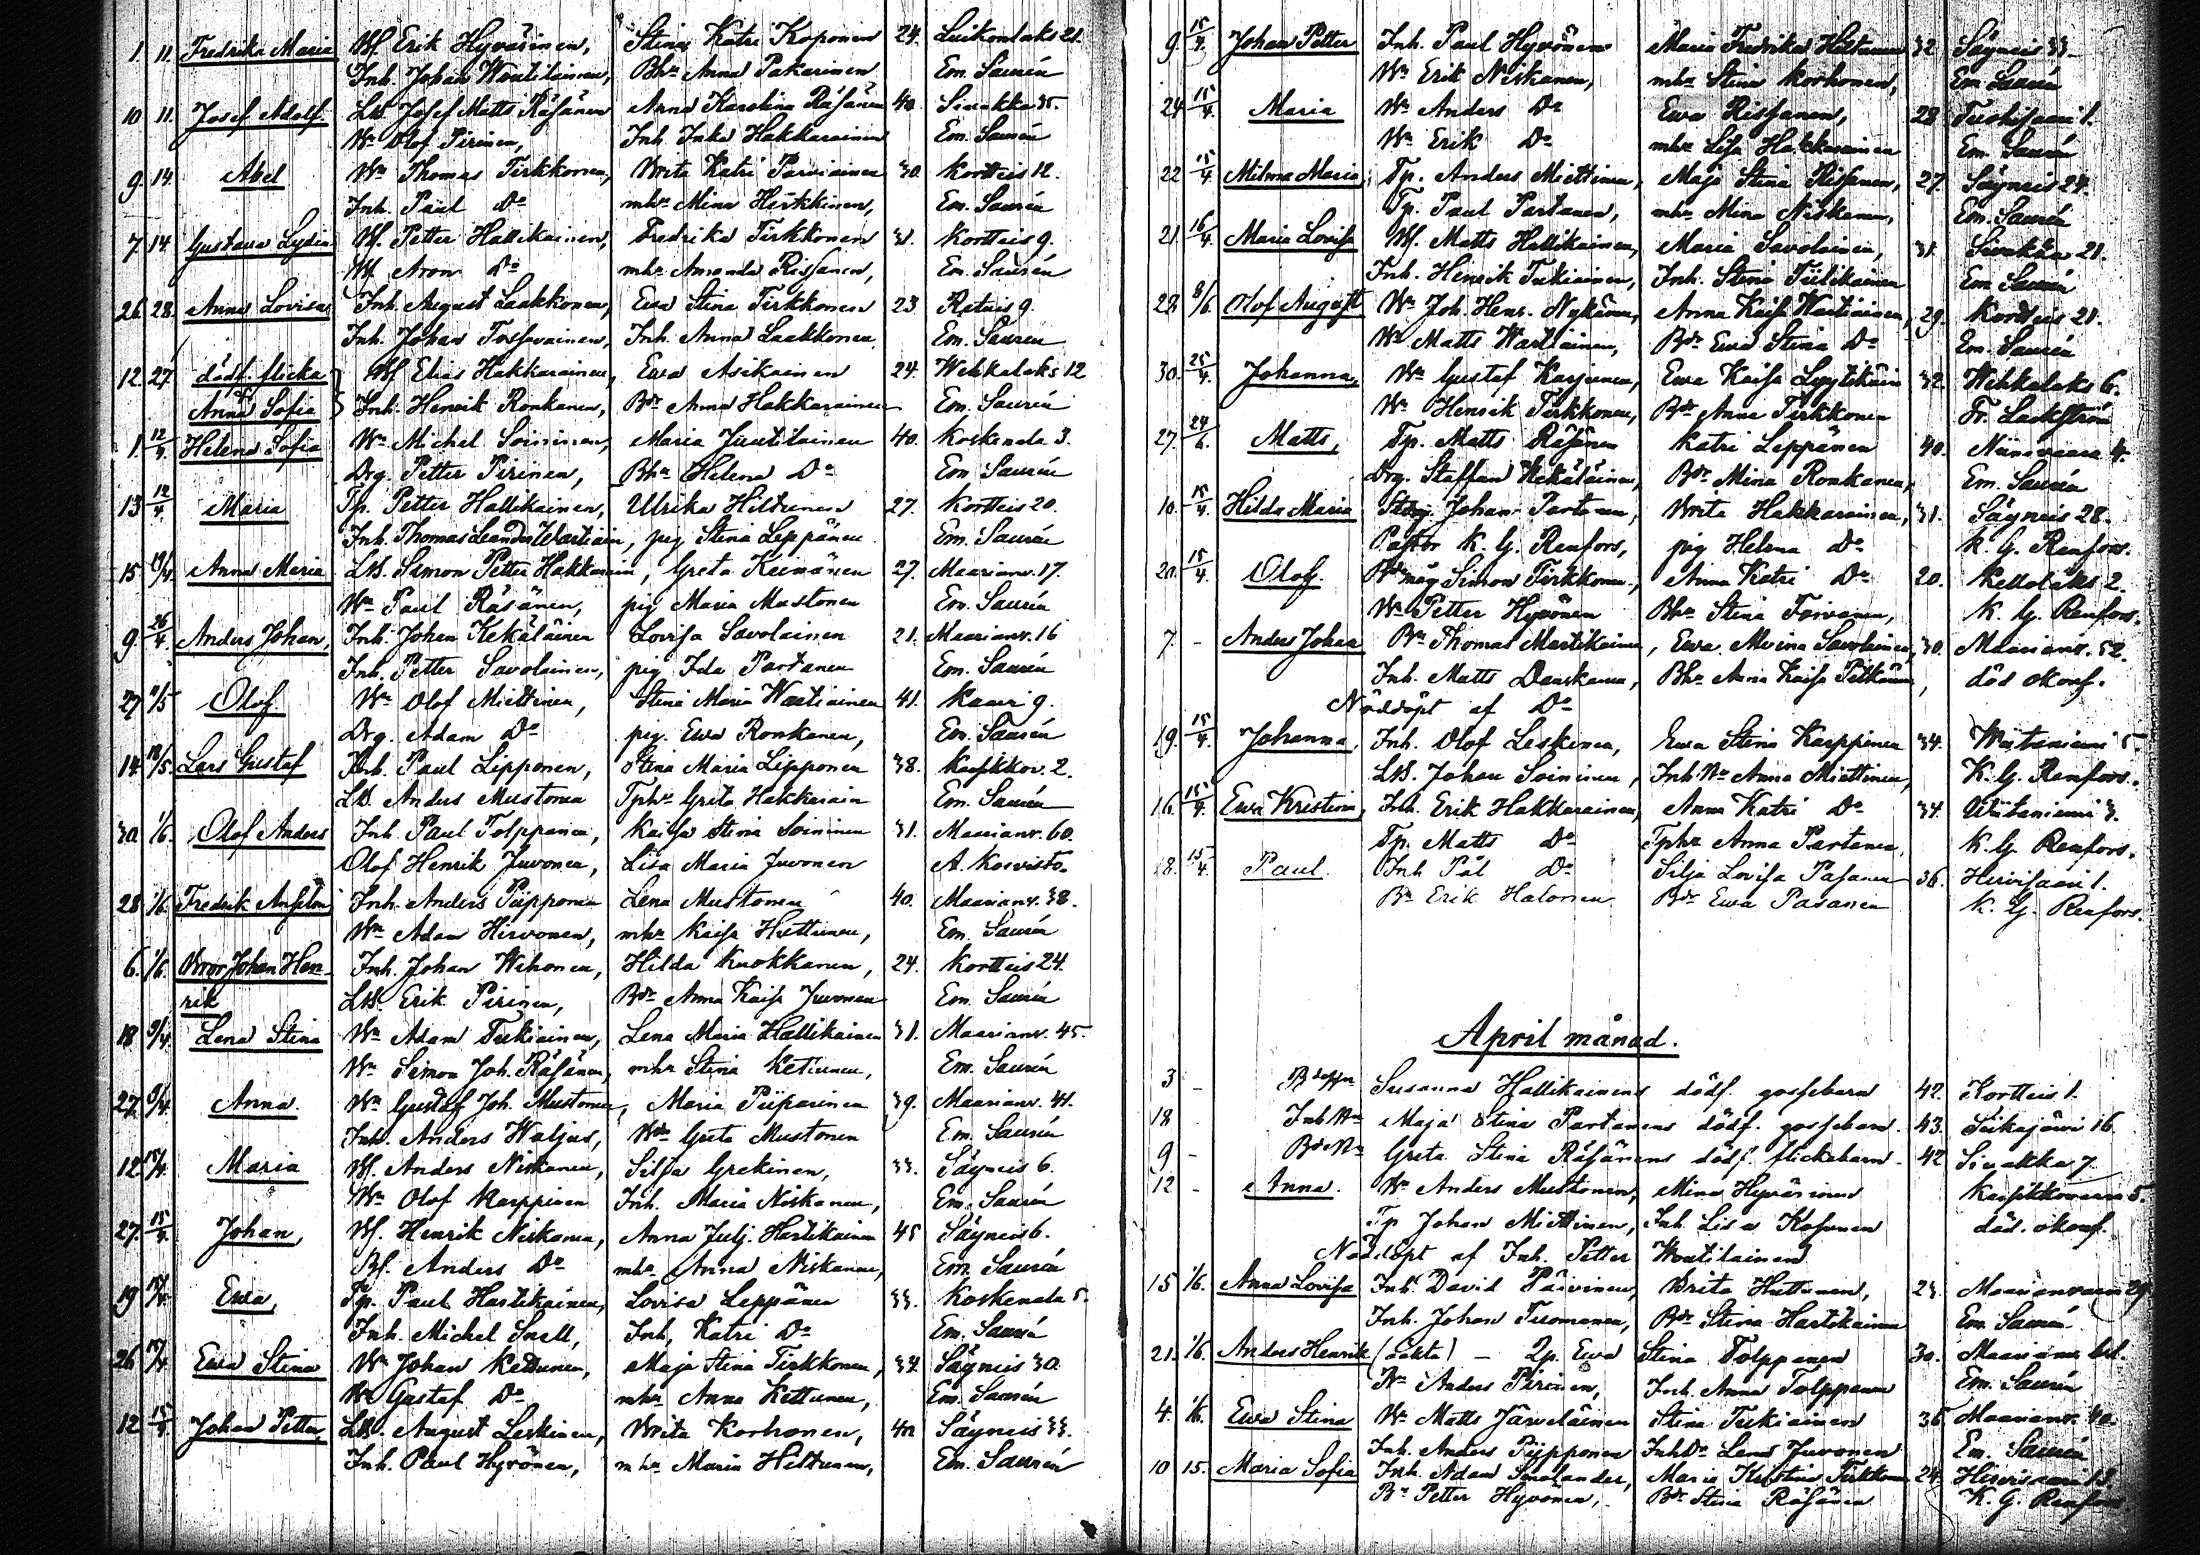 1. 11. Fredrika Maria Bf. Erik Hyvärinen, Stina Katri Koponen 24. Luikonlaks 21.
Inh. Johan Woutilainen, Bhr Anna Pakarinen Em. Saurén
10 11. Josef Adolf. Ls. Josef Matts Räsänen Anna Karolina Räsänen 40. Sivakka 35.
Wn Olof Pirinen, Inh. Inka Hakkarainen Em. Saurén
9 14. Abel Wn Thomas Tirkkonen, Brita Katri Parviainen 30. Kortteis 12.
Inh. Paul Do mhr Mina Heikkinen, Em. Saurén
7 14 Gustava Lydia Bf. Petter Hallikainen, Fredrika Tirkkonen 31. Kortteis 9.
Bf. Aron Do mhr Amanda Rissanen, Em. Saurén
26 28. Anna Lovisa Inh. August Laakkonen, Ewa Stina Tirkkonen 23. Ratuis 9.
Inh. Johan Tossavainen, Inh. Anna Laakkonen Em. Saurén
12. 27. dödf. flicka Bf Elias Hakkarainen, Ewa Asikainen 24. Wehkalaks 12
Anna Sofia Inh. Henrik Ronkanen, Bdr Anna Hakkarainen Em. Saurén
1. 12/4 Helena Sofia Wn Michel Soininen, Maria Juutilainen 40. Koskenala 3.
Drg. Petter Pirinen, Bhr Helena Do Em Saurén
13 12/4. Maria Tp. Petter Hallikainen, Ulrika Hiltunen 27. Kortteis 20.
Inh. Thomas Leander Wartiain, pig Stina Leppänen. Em. Saurén
15 Anna Maria Ls. Simon Petter Hakkarain, Greta Keinänen 27. Maarianv. 17.
Wn Paul Räsänen, pig Maria Mustonen Em. Saurén
9. 26/4 Anders Johan, Inh. Johan Kekäläinen Lovisa Savolainen 21. Maarianv. 16
Inh. Petter Savolainen, pig Ida Partanen Em. Saurén
27 Olof. Wn Olof Miettinen, Stina Maria Wartiainen 41. Kaavi 9.
Drg. Adam Do pig. Ewa Ronkanen, Em. Saurén
14 Lars Gustaf Inh. Paul Lipponen, Stina Maria Lipponen 38. Kaskkov. 2.
Ls. Anders Mustonen Tphr Greta Hakkarain Em. Saurén
30 1/6. Olof Anders Inh. Paul Tolppanen, Kaisa Stina Soininen 31. Maarianv. 60.
Olof Henrik Juvonen, Lisa Maria Juvonen A. Koivisto.
28 1/6. Fredrik Anselm Inh. Anders Piipponen Lena Mustonen 40. Maarianv. 38.
Wn Adam Hirvonen, mhr Kaisa Huttunen, Em. Saurén
6. 1/6. Bror Johan Hen- Inh. Johan Wihonen, Hilda Kuokkanen, 24. Kortteis 24.
rik Ls. Erik Pirinen, Bdr Anna Kaisa Juvonen Em. Saurén
18 Lena Stina Wn Adam Tukiainen, Lena Maria Hallikainen 31. Maarianv. 45.
Wn Simon Joh. Räsänen, mhr Stina Ketunen, Em. Saurén
27. Anna. Wn Gustaf Joh. Mustonen, Maria Piiparinen 39. Maarianv. 41.
Inh. Anders Waljus, Wdr Greta Mustonen Em. Saurén
12 Maria Bf. Anders Niskanen, Silja Grekinen, 33. Säyneis 6.
Wn Olof Karppinen Inh. Maria Niskanen, Em. Saurén
27. 15/4. Johan, Bf. Henrik Niskanen, Anna Julj. Hartikainen 45 Säyneis 6.
Bf. Anders Do mhr Anna Niskanen, Em. Saurén
19 Ewa, Tp. Paul Hartikainen, Lovisa Leppänen 33. Koskenala 5.
Inh. Michel Snell, Inh. Katri Do Em. Saurén
26 Ewa Stina Wn Johan Kettunen, Maja Stina Tirkkonen, 34. Säyneis 30.
Wn Gustaf Do mhr Anna Kettunen, Em. Saurén
12 15/4 Johan Petter, Ls. August Leskinen, Brita Korhonen, 40 Säyneis 33.
Inh. Paul Hyvönen, mhr Maria Hiltunen, Em. Saurén
9 15/4. Johan Petter Inh. Paul Hyvönen Maria Fredrika Hiltunen 32 Säyneis 33.
Wn Erik Niskanen, mhr Stina Korhonen, Em Saurén
24 15/4. Maria Wn Anders Do Ewa Rissanen, 28 Tuohisaari 1.
Wn Erik Do mhr Lisa Hakkarainen Em. Saurén
22 15/4. Milma Maria, Tp. Anders Miettinen, Maja Stina Rissanen, 27. Säyneis 24.
Tp. Paul Partanen, mhr Mina Niskanen, Em. Saurén
21. 16/4. Maria Lovisa Bf. Matts Hallikainen, Maria Savolainen, 31. Sivakka 21.
Inh. Henrik Tukiainen, Inh. Stina Tiilikainen Em Saurén
28 8/6. Olof August Wn Joh. Henr. Nykänen, Anna Kaisa Wartiainen, 29. Kortteis 21.
Wn Matts Wartiainen, Bdr Ewa Stina Do Em. Saurén
30. 25/4. Johanna, Wn Gustaf Karjunen, Ewa Kaisa Lyytikäin 32. Wehkalaks 6.
Wn Henrik Tirkkonen, Bdr Anna Tirkkonen Fr. Lackström
27. 24/6. Matts, Tp. Matts Räsänen Katri Leppänen 40. Niinivaara 4.
Drg. Staffan Kekäläinen, Bdr Mina Ronkanen, Em. Saurén
10. 15/4. Hilda Maria Johan Partanen, Brita Hakkarainen, 31. Säyneis 28.
Pastor K. G. Renfors, pig Helena Do K. G. Renfors.
20. 15/4. Olof. Bdmåg Simon Tirkkonen, Anna Katri Do 20. Kellolaks 2.
Wn Petter Hyvönen Bhr Stina Toivanen, K. G. Renfors.
7. - Anders Johan Bn Thomas Martikainen, Ewa Alvina Savolainen, 30. Maarianv. 52.
Inh. Matts Danskanen, Bhr Anna Kaisa Pitkänen, död okonf.
Nöddöpt af Do
19. 15/4. Johanna, Inh. Olof Leskinen, Ewa Stina Karppinen 34. Wiitaniemi 5.
Ls. Johan Soininen, Inh Hr Anna Miettinen, K. G. Renfors.
16. 15/4. Ewa Kristina, Inh. Erik Hakkarainen, Anna Katri Do 34. Wiitaniemi 3.
Tp. Matts Do Tphr Anna Partanen, K. G. Renfors.
8. 15/4. Paul. Inh Pål Do Silja Lovisa Pasanen 36. Hirvisaari 1.
Bn Erik Halonen Bdr Ewa Pasanen K. G. Renfors.
April månad.
3 - Susanna Hallikainens dödf. gossebarn 42. Kortteis 1.
18 Maja Stina Partanens dödf. gossebarn. 43. Siikajärvi 16.
9 - Greta Stina Räsänens dödf. flickebarn. 42 Sivakka 7.
12 - Anna. Wn Anders Mustonen, Mina Hyvärinen 5.
Tp Johan Miettinen, Inh. Lisa Kosunen död. okonf.
Nöddöpt af Inh. Petter Woutilainen
15 1/6. Anna Lovisa Inh. David Päivinen, Brita Huttunen, 23. Maarianvaara 29.
Inh. Johan Tuomanen, Bdr Stina Hartikainen Em. Saurén
21. 1/6. Anders Henrik (oäkta) - Qp. Ewa Stina Tolppanen 30. Maarianv. bel.
Anders Pirinen, Inh. Anna Tolppanen Em. Saurén
4. 1/6. Ewa Stina Wn Matts Järveläinen Stina Tukiainen 36 Maarianv. 40.
Inh. Anders Piipponen Lena Juvonen Em. Saurén
10 15. Maria Sofia Inh. Adam Smolander, Maria Kristina Tirkkonen 24. Hirvisaari
Bn Petter Hyvönen, Bdr Stina Räsänen K. G. Renfors.